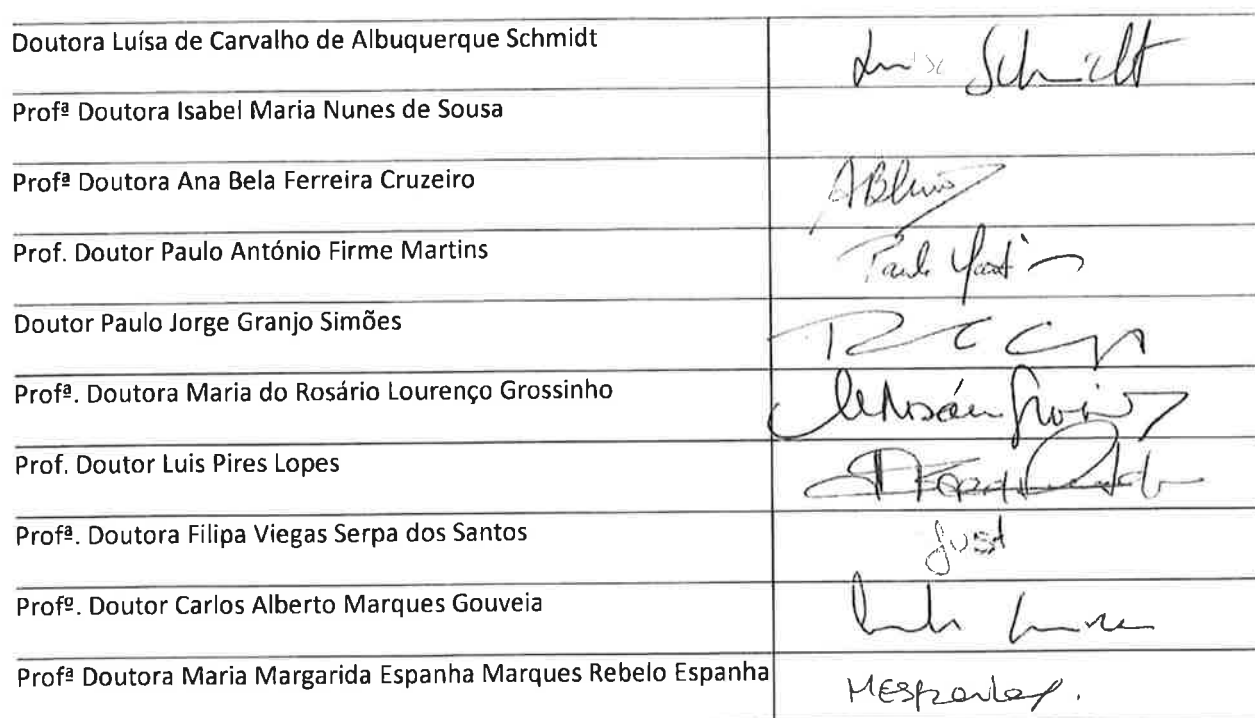 Doutora Luísa de Carvalho de Albuquerque Schmidt
Schmidt
Profª Doutora Isabel Maria Nunes de Sousa
Profª Doutora Ana Bela Ferreira Cruzeiro
Prof. Doutor Paulo António Firme Martins
Paulo Martins
Doutor Paulo Jorge Granjo Simões
Profª. Doutora Maria do Rosário Lourenço Grossinho
Prof. Doutor Luis Pires Lopes
Profª. Doutora Filipa Viegas Serpa dos Santos
Just
Profº. Doutor Carlos Alberto Marques Gouveia
Profª Doutora Maria Margarida Espanha Marques Rebelo Espanha